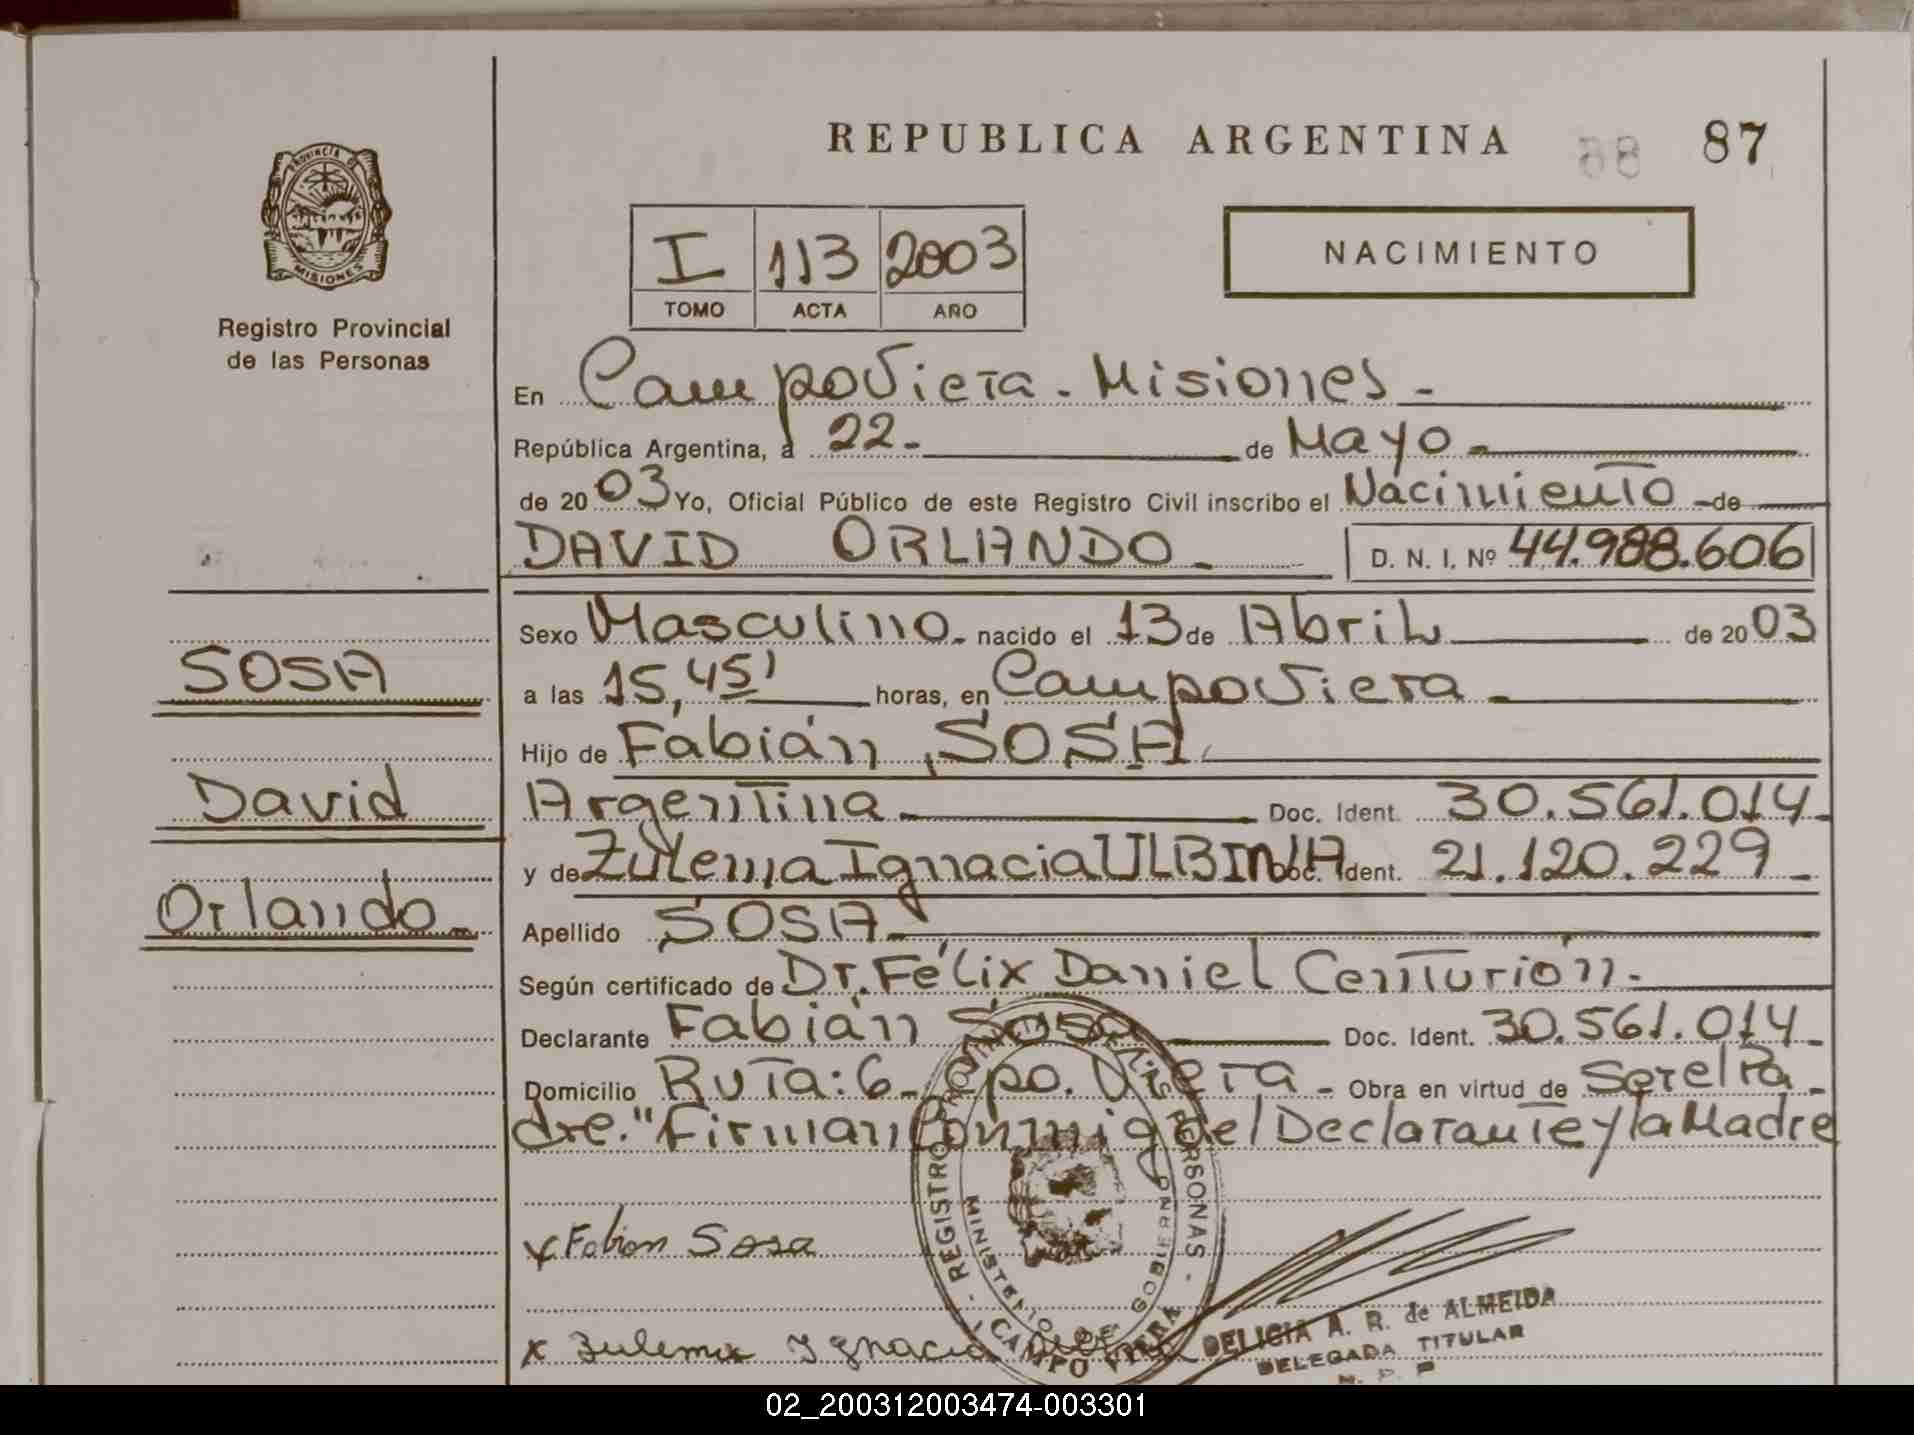 REPUBLICA ARGENTINA
88 87
PROVINCIA DE
MISIONES
Registro Provincial
de las Personas
I 113 2003
TOMO ACTA AÑO
NACIMIENTO
En Campo Viera - Misiones -
República Argentina, a 22 - de Mayo -
de 2003 Yo, Oficial Público de este Registro Civil inscribo el Nacimiento - de
DAVID ORLANDO - D. N. I. Nº 44.988.606
Sexo Masculino - nacido el 13 de Abril de 2003
a las 15,45' horas, en Campo Viera -
Hijo de Fabián, SOSA
Argentina - Doc. Ident. 30.561.014 -
y de Zulema Ignacia ULBINIA Doc. Ident. 21.120.229 -
Apellido SOSA -
Según certificado de Dr. Félix Daniel Centurión -
Declarante Fabián Sosa Doc. Ident. 30.561.014 -
Domicilio Ruta: 6 - Cpo. Viera - Obra en virtud de Ser el Pa-
dre." Firman Conmigo el Declarante y la Madre
SOSA
David
Orlando -
x Fabian Sosa
x Zulema Ignacia
REGISTRO PROVINCIAL DE LAS PERSONAS -
MINISTERIO DE GOBIERNO
CAMPO VIERA
DELICIA A. R. de ALMEIDA
DELEGADA TITULAR
02_200312003474-003301